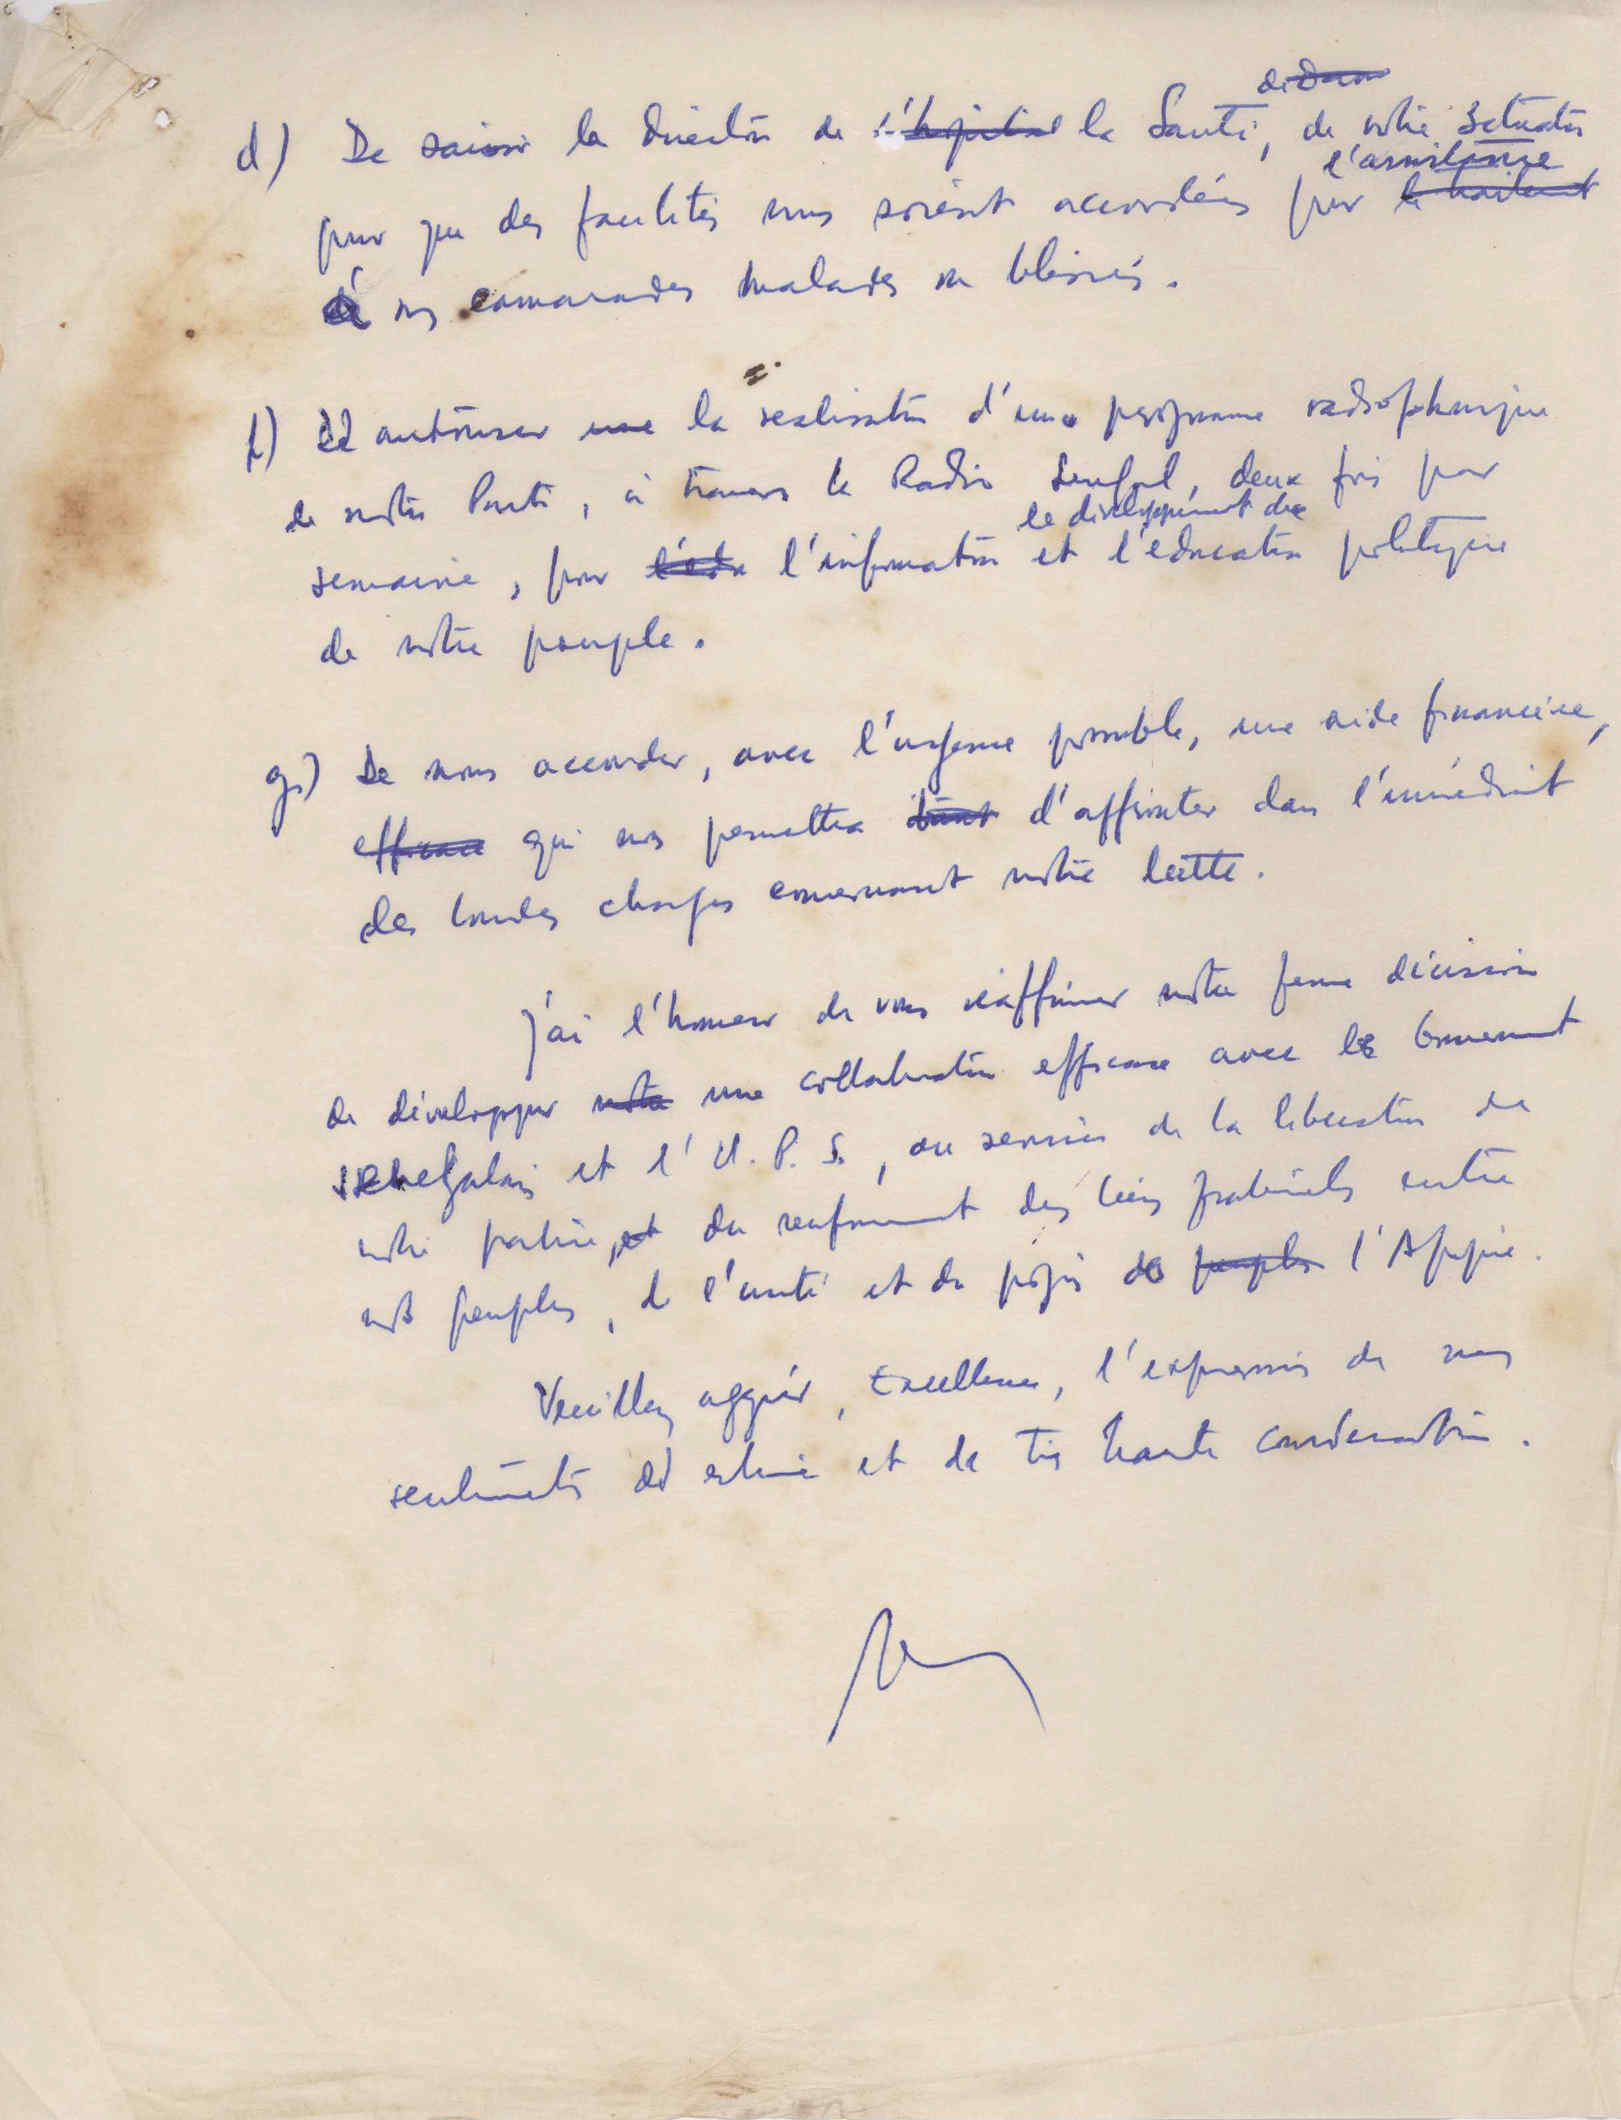 d) De saisir la Direction de l'hôpital la Santé, de notre situation
pour que des facilités nous soient accordées pour le traitement l'assistance
à nos camarades malades ou blessés.
f) D'autoriser une la réalisation d'une programme radiophonique
de notre Parti, à travers la Radio Senegal, deux fois par
le développement de
semaine, pour l'édu l'information et l'education politique
de notre peuple.
g) De nous accorder, avec l'urgence possible, une aide financière,
efficace qui nous permettra d'affronter dans l'immédiat
des lourdes charges concernant notre lutte.
J'ai l'honneur de vous réaffirmer notre ferme décision
de développer notre une collaboration efficace avec le Gouvernement
senegalais et l'U.P.S., au service de la liberation de
notre patrie, et du renforcement des liens fraternels entre
nos peuples, de l'unité et du progrès de peuples l'Afrique.
Veuillez agréér, Excellence, l'expression de mes
sentiments d'estime et de très haute consideration.